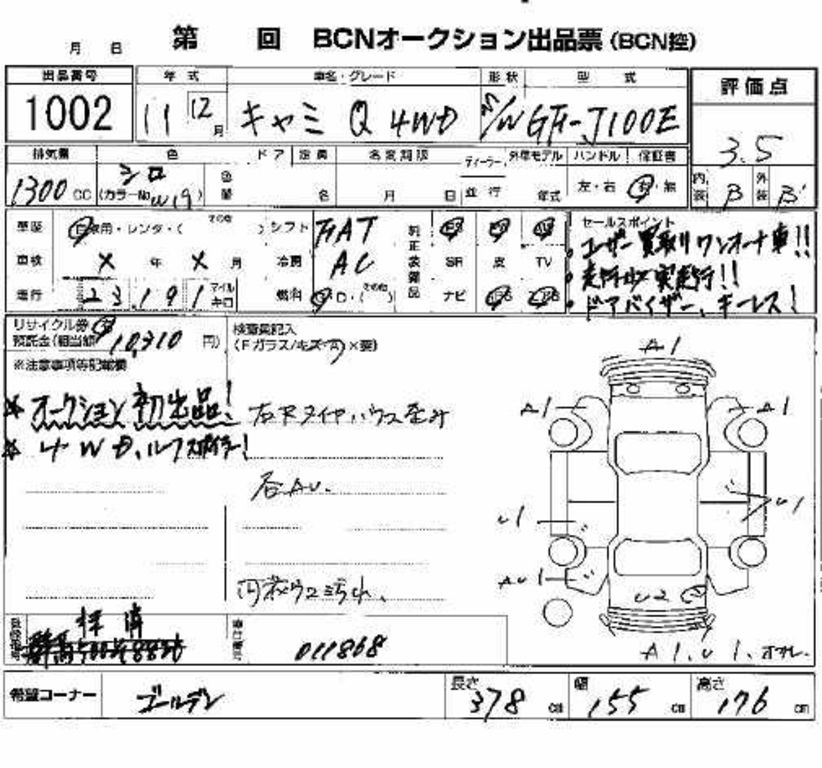 月 日 第 回 BCNオークション出品票(BCN控)
出品番号 年 式 車名・グレード 形状 型 式 評価点
1002 11 12月 キャミ Q 4WD S/W GF-J100E 3.5
排気量 色 ドア 定員 名変期限 ディーラー 外車モデル ハンドル 保証書
1300 CC シロ (カラーNo W19) 色替 名 月 日 並行 年式 左・右 有・無 内装 B 外装 B'
車歴 自家用・レンタ・( その他 ) シフト FAT 純正装備品 セールスポイント
ユーザー買取りワンオーナー車!!
車検 X 年 X 月 冷房 AC SR 皮 TV
走行少実走行!!
走行 23,191 マイル キロ 燃料 G・D・(その他) ナビ
ドアバイザー、キーレス!
リサイクル券 有
預託金(相当額 10,310 円)
検査員記入
(Fガラス/キズ・ワ×要)
※注意事項等記載欄
A1
※ オークション初出品! 右Rタイヤハウス歪み A1 A1
※ 4WD、ルーフスポイラー!
右AU.
U1 U1
AU1
内装ウス汚れ、 U2
登録番号 群馬500 8836 車台番号 011868
A1.U1.
希望コーナー ゴールデン 長さ 378 cm 幅 155 cm 高さ 176 cm